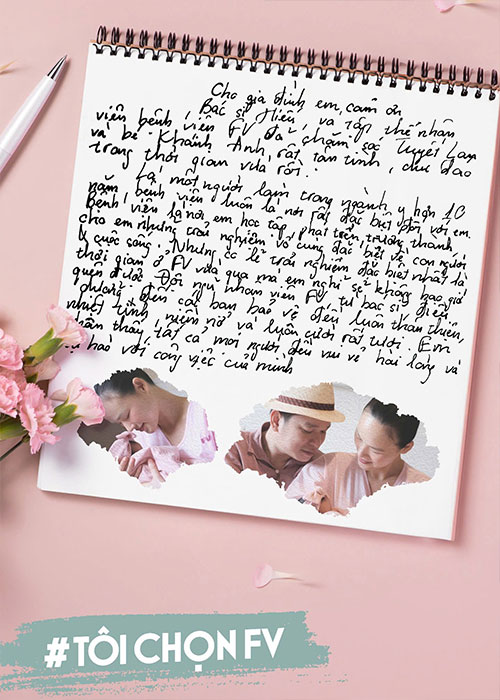 Cho gia đình em cảm ơn
Bác sĩ Hiền, và tập thể nhân
viên bệnh viện FV đã chăm sóc Tuyết Lan
và bé Khánh Anh rất tận tình, chu đáo
trong thời gian vừa rồi.
Là một người làm trong ngành y hơn 10
năm bệnh viện luôn là nơi rất đặc biệt đối với em.
Bệnh viện là nơi em học tập, phát triển, trưởng thành
cho em những trải nghiệm vô cùng đặc biệt về con người
lý cuộc sống. Nhưng có lẽ trải nghiệm đặc biệt nhất là
thời gian ở FV vừa qua mà em nghĩ sẽ không bao giờ
quên được. Đội ngũ nhân viên FV từ bác sĩ, điều
dưỡng đến các bạn bảo vệ đều luôn thân thiện,
nhiệt tình, niềm nở và luôn cười rất tươi. Em
nhận thấy tất cả mọi người đều vui vẻ hài lòng và
tự hào với công việc của mình
#TÔI CHỌN FV